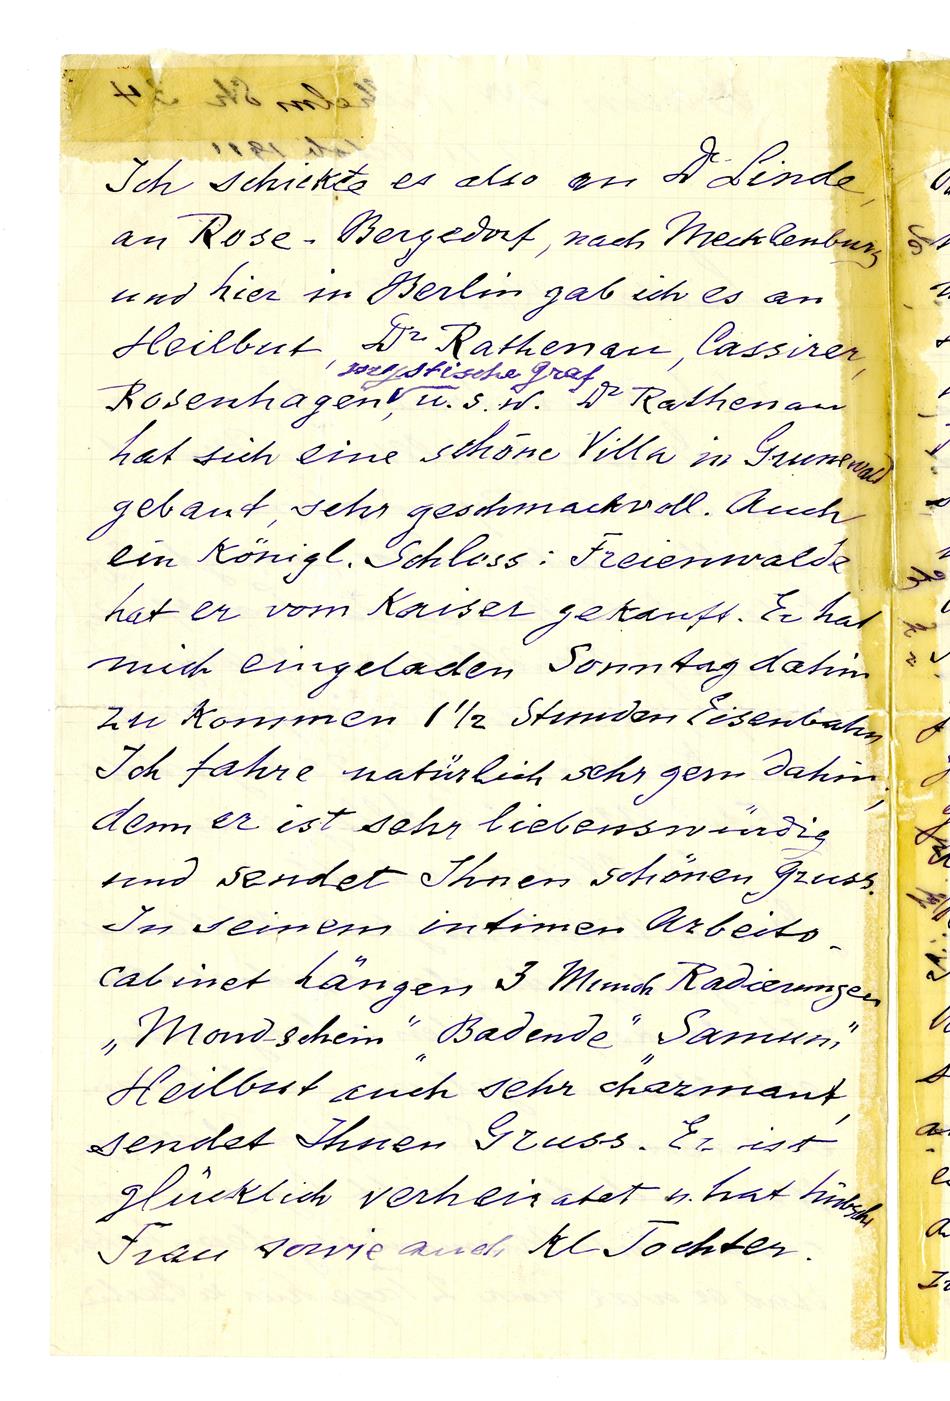 Ich schickte es also an Dr Linde,
an Rose - Bergedorf, nach Mecklenburg
und hier in Berlin gab ich es an
Heilbut, Dr Rathenau, Cassirer,
mystische Graf
Rosenhagen, u. s. w. Dr Rathenau
hat sich eine schöne Villa in Grunewald
gebaut, sehr geschmackvoll. Auch
ein Königl. Schloss: Freienwalde
hat er vom Kaiser gekauft. Er hat
mich eingeladen Sonntag dahin
zu kommen 1 1/2 Stunden Eisenbahn
Ich fahre natürlich sehr gern dahin,
denn er ist sehr liebenswürdig
und sendet Ihnen schönen Gruss.
In seinem intimen Arbeits-
cabinet hängen 3 Munch Radierungen
„Mondschein" „Badende" „Samum"
Heilbut auch sehr charmant,
sendet Ihnen Gruss. Er ist
glücklich verheiratet u. hat hübsche
Frau sowie auch Kl Tochter.